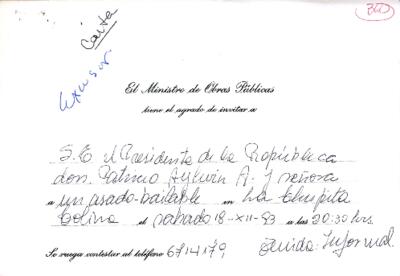 Carta
Excusa.
360
El Ministro de Obras Públicas
tiene el agrado de invitar a
S.E el Presidente de la República
don Patricio Aylwin A. y señora
a un asado-bailable en La Chispita
Colina el sábado 18-XII-93 a las 20:30 hrs.
Se ruega contestar al teléfono 6714179
Tenida: Informal.